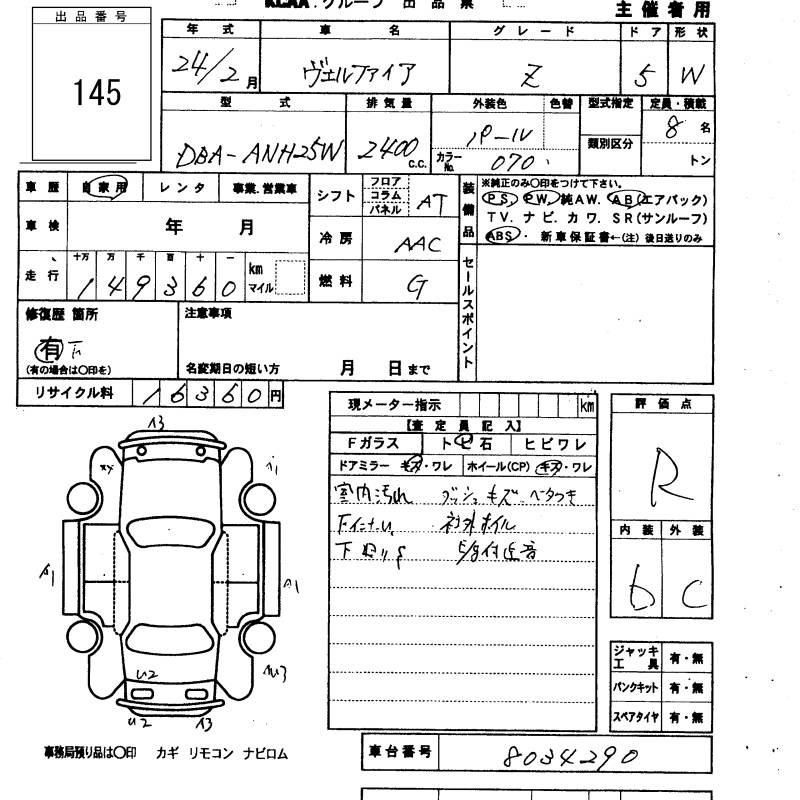 KCAA.グループ 出品票
主催者用
出品番号
145
年式 車名 グレード ドア 形状
24/2月 ヴェルファイア Z 5 W
型式 排気量 外装色 色替 型式指定 定員・積載
DBA-ANH25W 2400 C.C. パール 8名
カラーNo. 070 類別区分 トン
車歴 自家用 レンタ 事業.営業車
車検 年 月
走行 十万 万 千 百 十 一
149360 km マイル
シフト フロア コラム パネル AT
冷房 AAC
燃料 G
装備品 ※純正のみ〇印をつけて下さい。
PS. PW. 純AW. AB(エアバック)
TV. ナビ. カワ. SR(サンルーフ)
ABS・ 新車保証書←(注) 後日送りのみ
セールスポイント
修復歴 箇所 注意事項
有
(有の場合は〇印を) 名変期日の短い方 月 日まで
リサイクル料 16360円
現メーター指示 km
【査定員記入】
Fガラス トビ石 ヒビワレ
ドアミラー キズ・ワレ ホイール(CP) キズ・ワレ
室内汚れ ダッシュキズ ベタつき
社外ホイル
下回りS
評価点
R
内装 外装
b C
A3
A1
A1
U2
U2 A3
ジャッキ工具 有・無
パンクキット 有・無
スペアタイヤ 有・無
事務局預り品は〇印 カギ リモコン ナビロム
車台番号 8034290